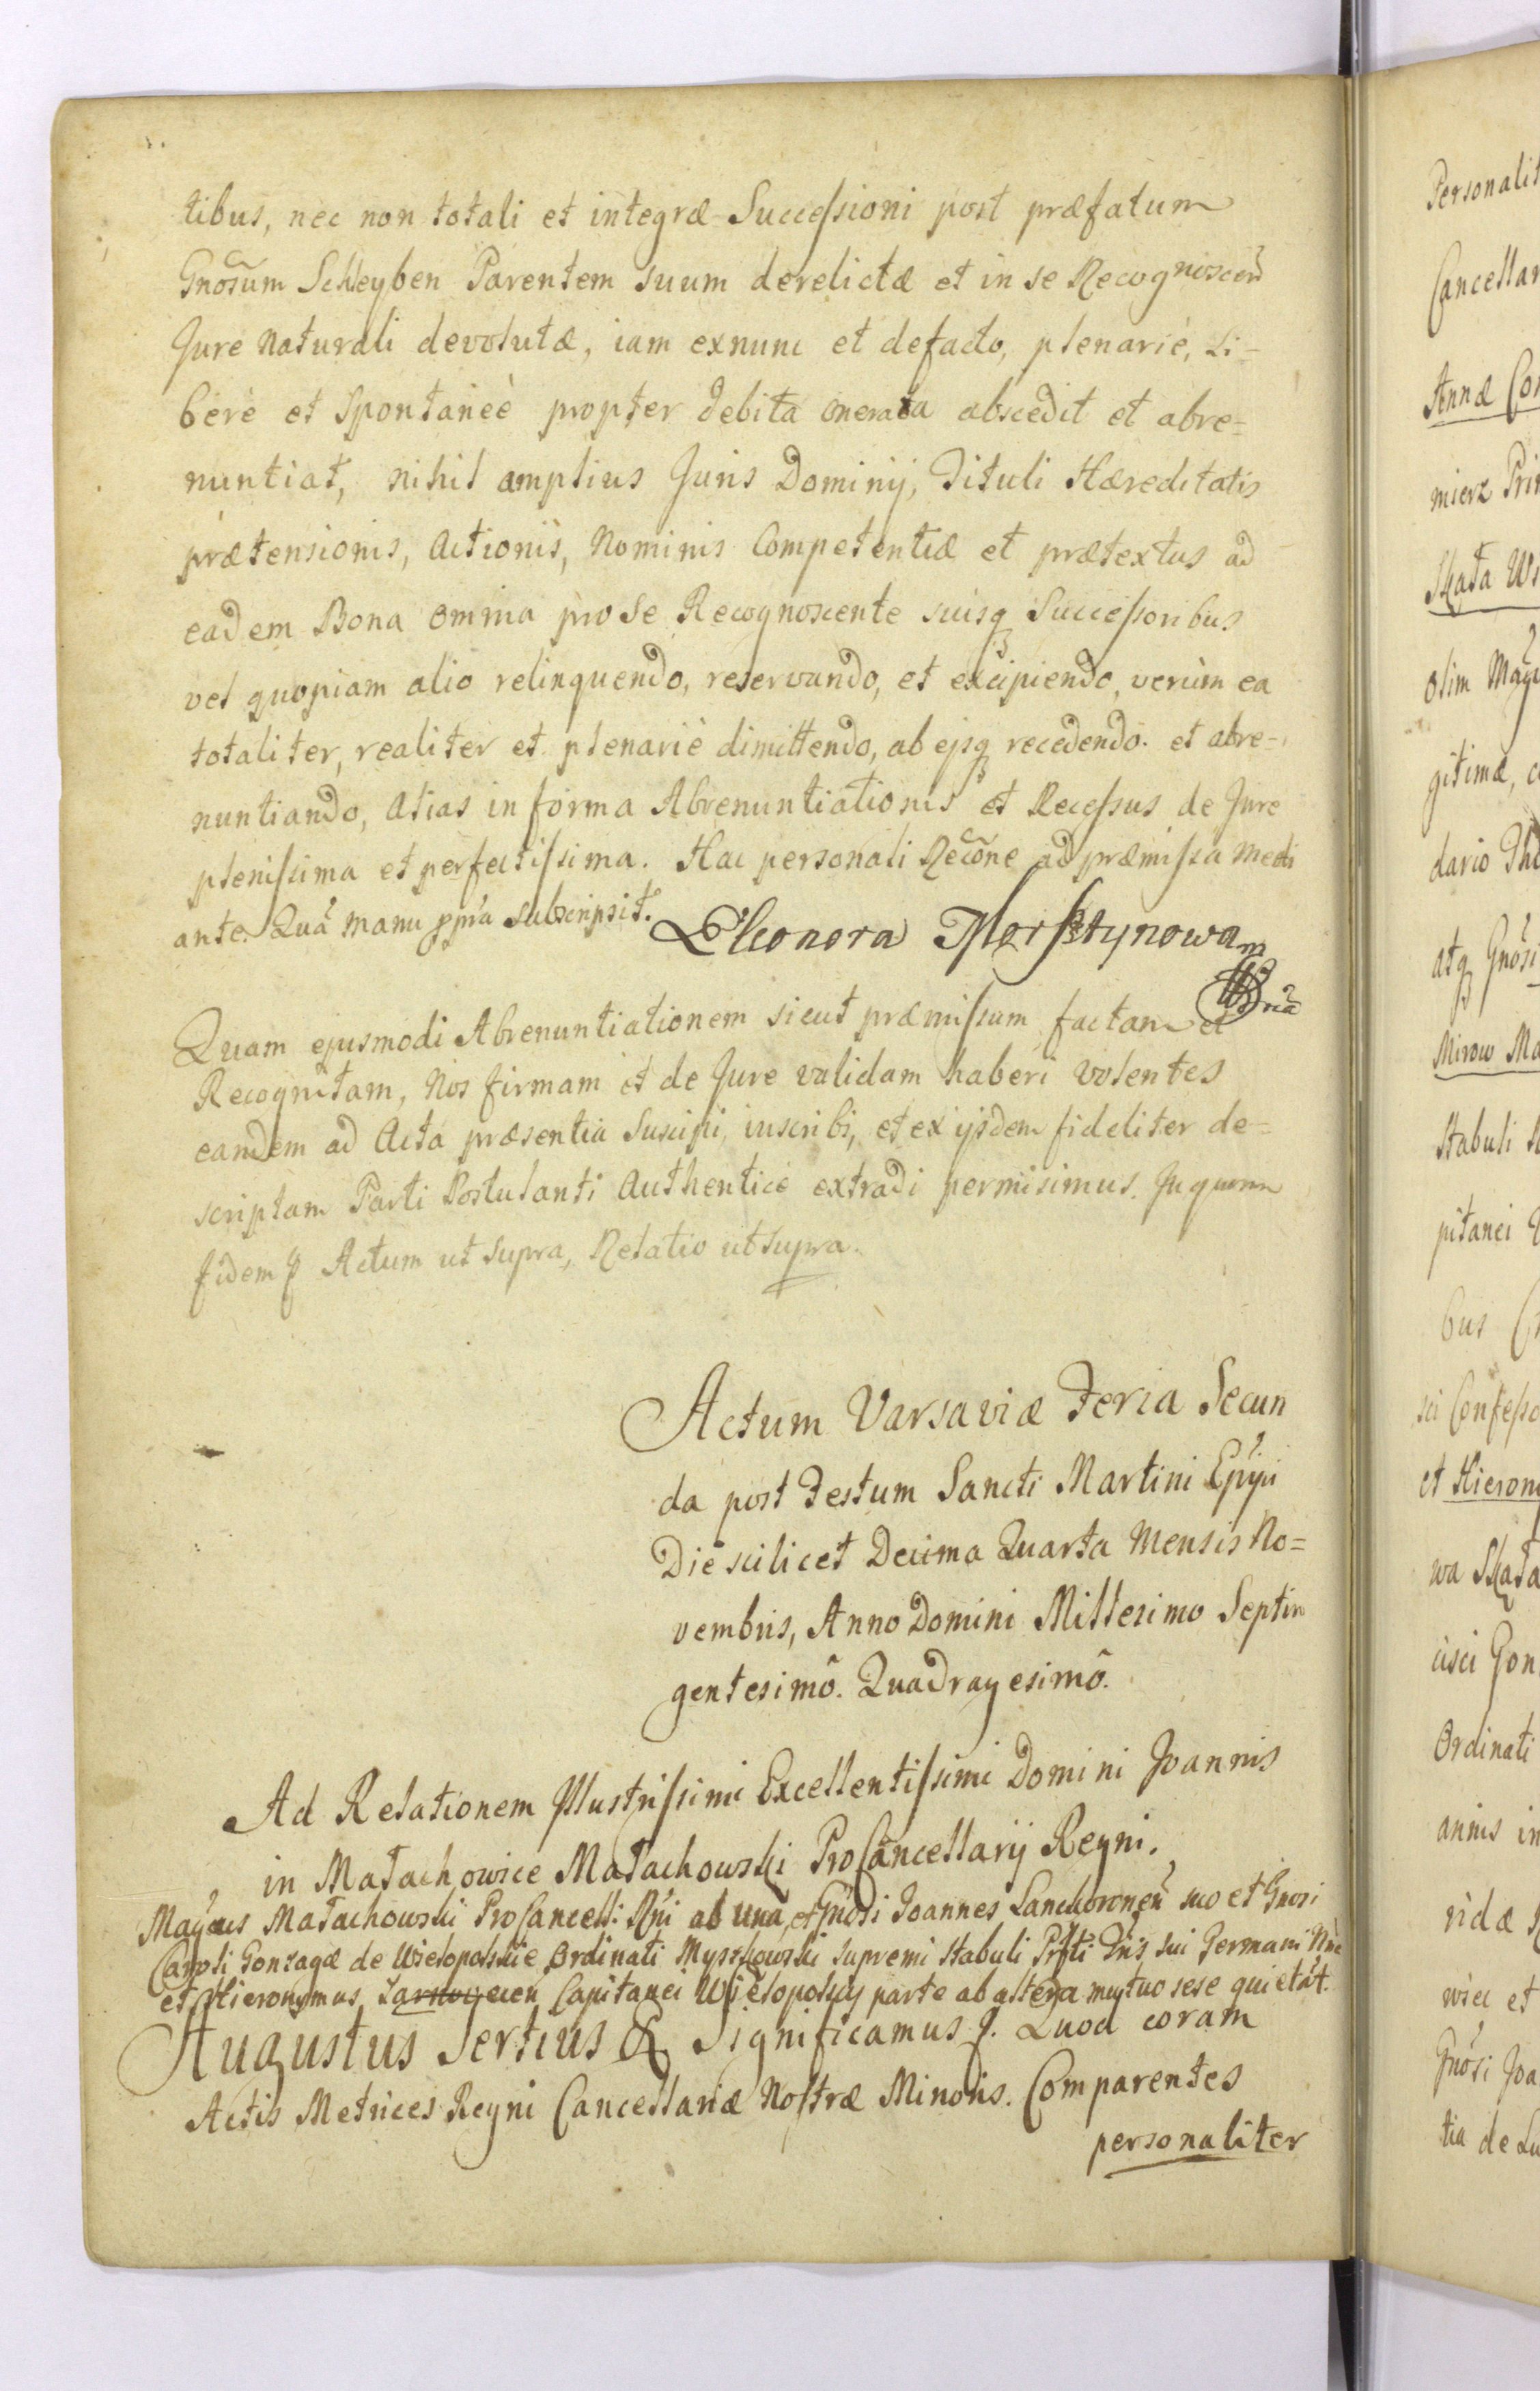 tibus, nec non totali et integræ Successioni post præfatum
Gnosũm Schleyben Parentem suum derelictæ et in se Recognoscen̄
Jure Naturali devolutæ, iam exnunc et defacto, plenariè, Li-
berè et Spontaneè propter debita onerata abscedit et abre=
nuntiat, nihil amplius Juris Dominij, Tituli Hæreditatis
prætensionis, Actionis, Nominis Competentiæ et prætextus ad
eadem Bona omnia pro Se Recognoscente suisq Successoribus
vel quopiam alio relinquendo, reservando, et excipiendo, verùm ea
totaliter, realiter et plenariè dimittendo, ab ejsq recedendo. et abre-
nuntiando, alias in forma Abrenuntiationis et Recessus de Jure
plenissima et perfectissima. Hac personali Recõne ad præmissa medi
ante. Quã manu ppria subscripsit. Eleonora Morsztynowa
Quam ejusmodi Abrenuntiationem sicut præmissum factam et
Recognitam, Nos firmam et de Jure validam haberi volentes
eandem ad Acta præsentia Suscipi, inscribi, et ex ijsdem fideliter de-
scriptam Parti Postulanti Authenticè extradi permisimus. In quorum
fidem Actum ut supra, Relatio ut supra.
Actum Varsaviæ Feria Secun
da post Festum Sancti Martini Epīpi
Die scilicet Decima Quarta Mensis No=
vembris, Anno Domini Millesimo Septin
gentesimõ. Quadragesimõ.
Ad Relationem Illustrissimi Excellentissimi Domini Joannis
in Małachowice Małachowski ProCancellarij Regni.
Małachowski ProCancell: Rñi ab una, et Gnõsi Joannes Lanckoroneñ suo et Gnosi
Caroli Gonzagæ de Wielopolskie Ordinati Myszkowski Supremi Stabuli Prfti Dnis sui Germani
et Hieronymus Capitanei Wielopolscy parte ab altera mutuo sese quietãt.
Augustus Tertius & Significamus Quod coram
Actis Metrices Regni Cancellariæ Nostræ Minoris. Comparentes
personaliter
Personalit
Cancellar
Annæ Co
mierz Pri
Skała W
olim Mag
gitimæ, c
dario Th
atq Gnõsi
Mirow Ma
Stabuli
pitanei
bus
sci Confesso
et Hierony
wa Skała
cisci Gon
Ordinati
annis in
ridæ
wiec et
Gnõsi Joa
tia de Lu